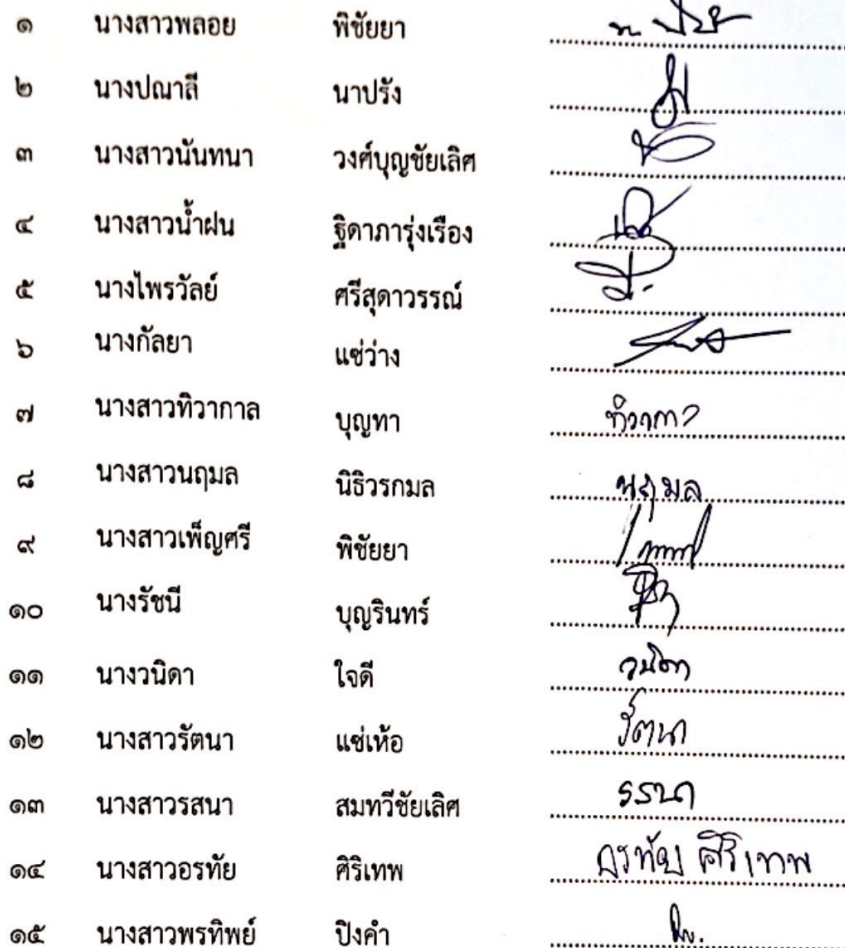 ๑ นางสาวพลอย พิชัยยา
๒ นางปณาลี นาปรัง
๓ นางสาวนันทนา วงศ์บุญชัยเลิศ
๔ นางสาวน้ำฝน ฐิดาภารุ่งเรือง
๕ นางไพรวัลย์ ศรีสุดาวรรณ์
๖ นางกัลยา แซ่ว่าง
๗ นางสาวทิวากาล บุญทา ทิวากาล
๘ นางสาวนฤมล นิธิวรกมล นฤมล
๙ นางสาวเพ็ญศรี พิชัยยา
๑๐ นางรัชนี บุญรินทร์
๑๑ นางวนิดา ใจดี วนิดา
๑๒ นางสาวรัตนา แซ่เห้อ รัตนา
๑๓ นางสาวรสนา สมทวีชัยเลิศ รสนา
๑๔ นางสาวอรทัย ศิริเทพ อรทัย ศิริเทพ
๑๕ นางสาวพรทิพย์ ปิงคำ